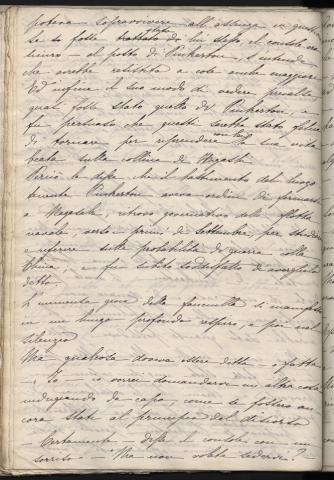 poteva sopravvivere all'assenza in quella
se si fosse trattato di lui stesso, il console era
sicuro — al posto di Pinkerton, s'intende
che avrebbe resistito a cose anche maggiori
Ed infine il suo modo di vedere prevalse
qual fosse stato quello di Pinkerton, e
fu persuaso che questi sarebbe stato felice
di tornare per riprendere con lui la sua vita
beata sulla collina di Higashi
Perciò le disse che il bastimento del luogo
tenente Pinkerton aveva ordini di fermarsi
a Nagasaki, ritrovo governativo della flotta
navale, verso i primi di settembre, per studiare
e riferire sulle probabilità di guerra colla
China, e fu subito soddisfatto di averglielo
detto.
L'immensa gioia della fanciulla si manifestò
in un lungo profondo respiro, e poi nel
silenzio
Ma qualcosa doveva essere detto — o fatto
— Io — io vorrei domandarvi un'altra cosa
indugiando da capo, come se fossero an
cora stati al principio del discorso
— Certamente — disse il console con un
sorriso — Ma non volete sedervi? —